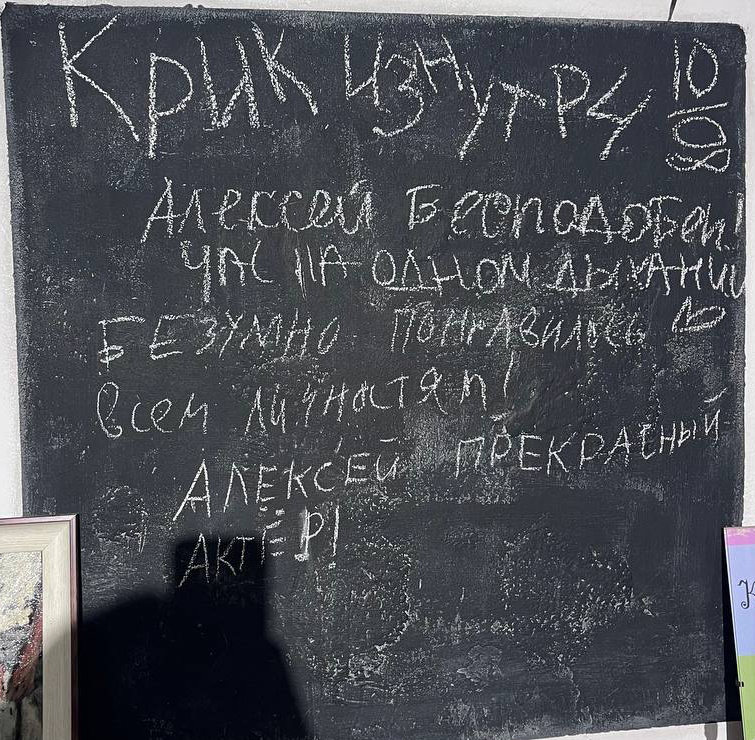 Крик изнутри 10/08
Алексей Бесподобен!
Час на одном дыхании
Безумно понравилось
всем личностям!
Алексей прекрасный
актёр!